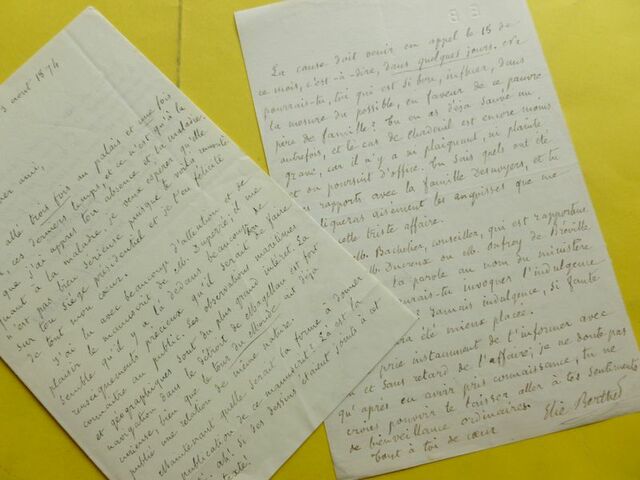 3 août 1874
her ami,
allé trois fois au palais et une fois
, ces derniers temps, et ce n'est qu'à la
que j'ai appris ton absence et ta maladie.
quant à la maladie, je veux espérer qu'elle
n'est pas bien sérieuse, puisque te voilà remonté
sur ton siège présidentiel et je t'en félicite
de tout mon cœur.
J'ai lu avec beaucoup d'attention et de
plaisir le manuscrit de Mr. Il me
semble qu'il y a là dedans beaucoup de
renseignements précieux qu'il serait bon de faire
connaître au public. Ses observations maritimes
et géographiques sont du plus grand intérêt. La
navigation dans le détroit de Magellan est fort
curieuse, bien que le tour du Monde ait déjà
publié une relation de même nature.
Maintenant quelle serait la forme à donner
publication de ce manuscrit? Là est la
ah! si des dessins étaient joints à cet
texte!
La cause doit venir en appel le 15 de
ce mois, c'est-à-dire, dans quelques jours. Ne
pourrais-tu, toi qui est si bon, influer, dans
la mesure du possible, en faveur de ce pauvre
père de famille? Tu en as déjà sauvé un
autrefois, et le cas de Chadeuil est encore moins
grave, car il n'y a ni plaignant, ni plainte
et on poursuit d'office. Tu sais quels ont été
rapports avec la famille Desnoyers, et tu
liqueras aisément les angoisses que me
cette triste affaire.
Mr. Bachelier, conseiller, qui est rapporteur
Mr. Ducreux ou Mr. Dufrey de Bréville
la parole au nom du ministère
urais-tu invoquer l'indulgence
jamais indulgence, si faute
ura été mieux placée.
prie instamment de t'informer avec
et sans retard de l'affaire; je ne doute pas
qu'après en avoir pris connaissance, tu ne
crois pouvoir te laisser aller à tes sentiments
de bienveillance ordinaires.
Tout à toi de cœur
Elie Berthet